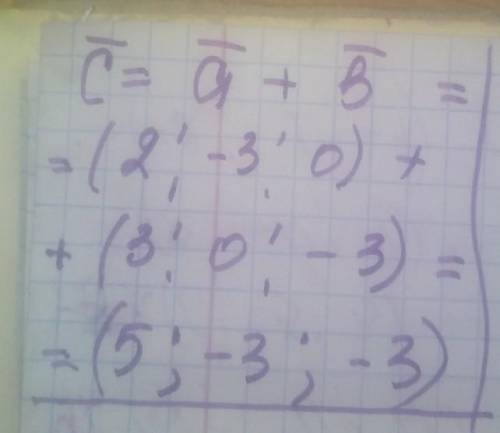 c̄ = ā + b̄ =
= (2; -3; 0) +
+ (3; 0; -3) =
= (5; -3; -3)